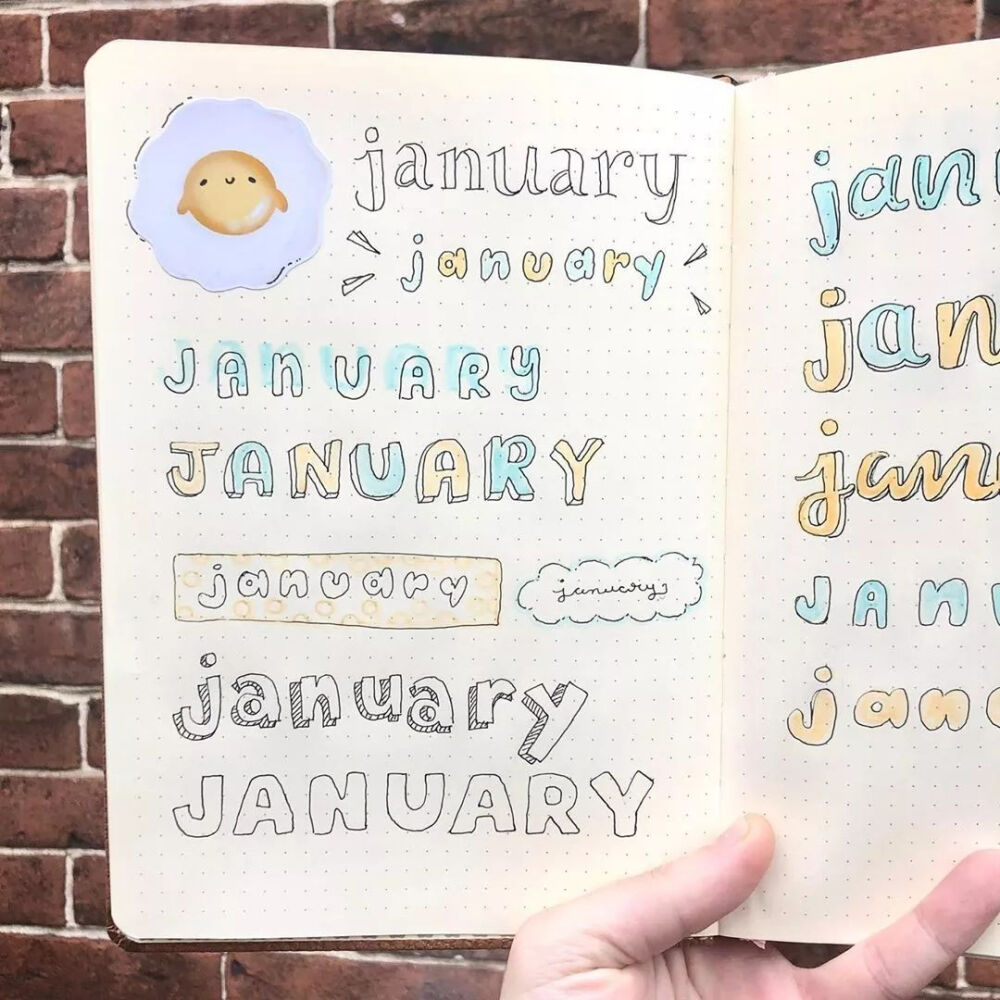 january
january
JANUARY
JANUARY
january
january
january
JANUARY
jan
jan
janu
JAN
jan